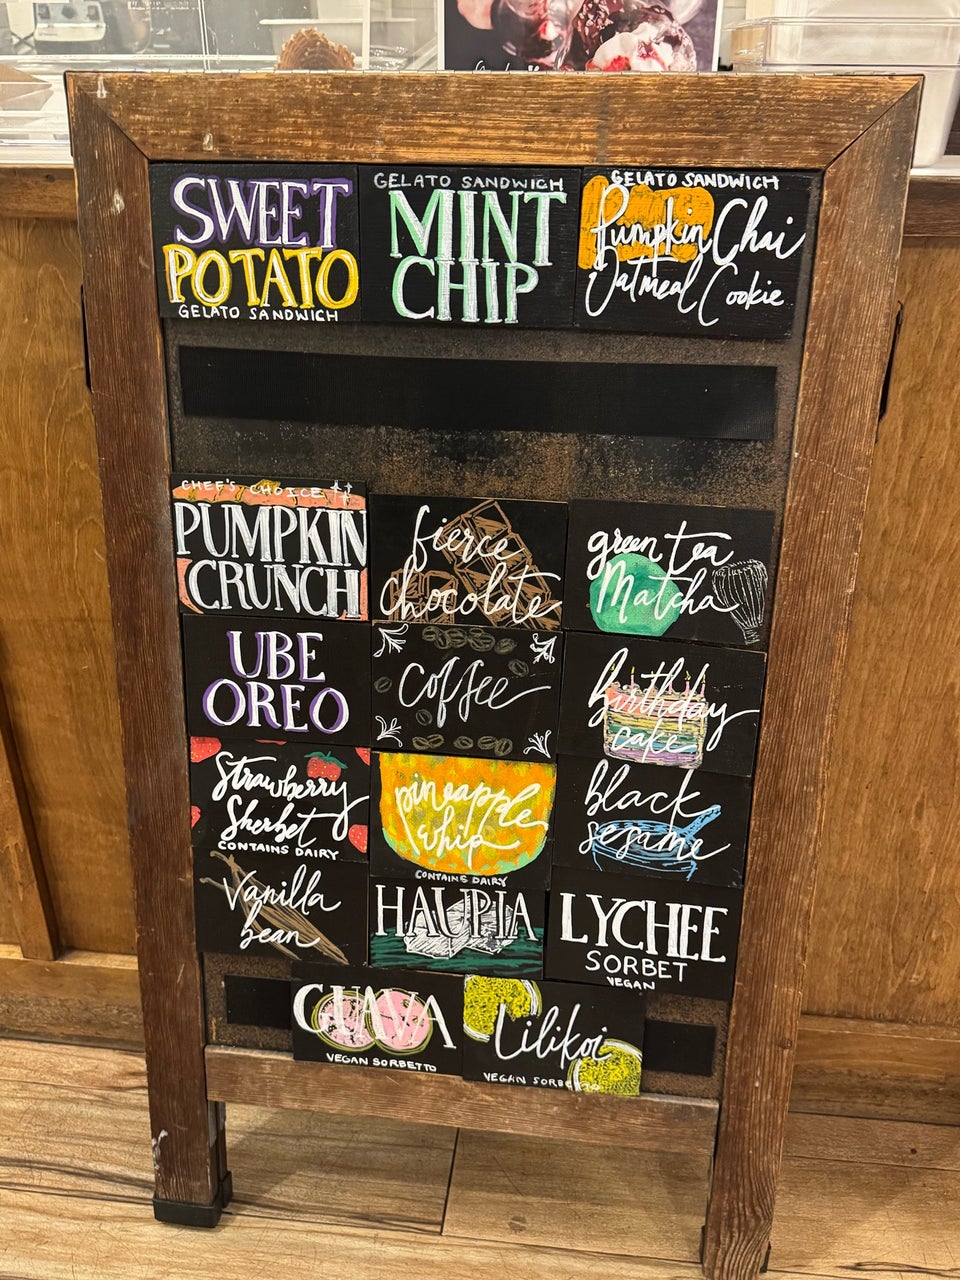 SWEET
POTATO
GELATO SANDWICH
GELATO SANDWICH
MINT
CHIP
GELATO SANDWICH
Pumpkin Chai
Oatmeal Cookie
CHEF'S CHOICE
PUMPKIN
CRUNCH
fierce
chocolate
green tea
Matcha
UBE
OREO
coffee
birthday
cake
Strawberry
Sherbet
CONTAINS DAIRY
pineapple
whip
CONTAINS DAIRY
black
sesame
Vanilla
bean
HAUPIA
LYCHEE
SORBET
VEGAN
GUAVA
VEGAN SORBETTO
Lilikoi
VEGAN